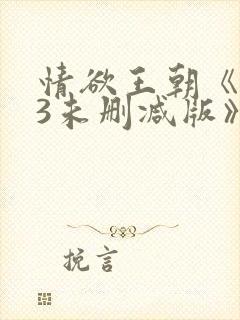 情欲王朝《
3未删减版》
挽言